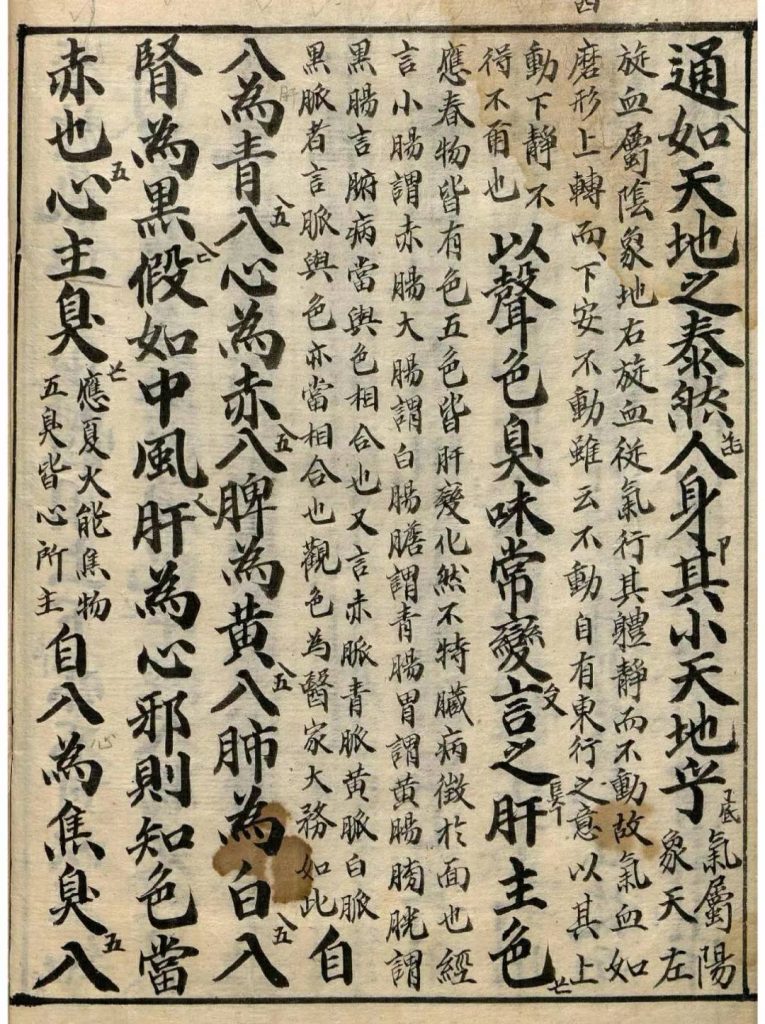 通如天地之泰然人身其小天地乎
氣屬陽
象天左
旋血屬陰象地右旋血從氣行其軆靜而不動故氣血如
磨形上轉而下安不動雖云不動自有東行之意以其上
動下靜不
得不爾也
以聲色臭味常變言之肝主色
應春物皆有色五色皆肝變化然不特臟病徵於面也經
言小腸謂赤腸大腸謂白腸膽謂青腸胃謂黃腸膀胱謂
黑腸言腑病當與色相合也又言赤脈青脈黃脈白脈
黑脈者言脈與色亦當相合也觀色為醫家大務如此
自
入為青入心為赤入脾為黃入肺為白入
腎為黑假如中風肝為心邪則知色當
赤也心主臭
應夏火能焦物
五臭皆心所主
自入為焦臭入